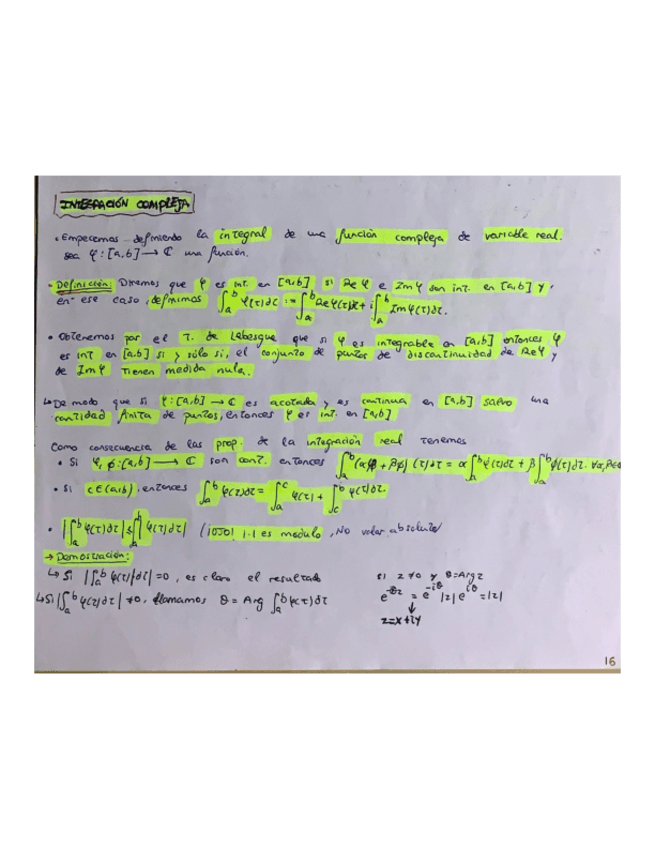 INTEGRACIÓN COMPLEJA
• Empecemos definiendo la integral de una función compleja de variable real.
sea φ: [a,b] → ℂ una función.
• Definición: Diremos que φ es int. en [a,b] si Re φ e Im φ son int. en [a,b] y,
en ese caso, definimos ∫_a^b φ(τ)dτ := ∫_a^b Re φ(τ)dτ + i∫_a^b Im φ(τ)dτ.
• Obtenemos por el T. de Lebesgue que si φ es integrable en [a,b] entonces φ
es int en [a,b] si y sólo si, el conjunto de puntos de discontinuidad de Re φ y
de Im φ tienen medida nula.
↳ De modo que si φ: [a,b] → ℂ es acotada y es continua en [a,b] salvo una
cantidad finita de puntos, entonces φ es int. en [a,b]
Como consecuencia de las prop. de la integración real tenemos
• Si φ, ϕ: [a,b] → ℂ son cont. entonces ∫_a^b (αφ + βϕ)(τ)dτ = α∫_a^b φ(τ)dτ + β∫_a^b ϕ(τ)dτ. ∀α,β∈
• Si c∈(a,b), entonces ∫_a^b φ(τ)dτ = ∫_a^c φ(τ) + ∫_c^b φ(τ)dτ.
• |∫_a^b φ(τ)dτ| ≤ ∫_a^b |φ(τ)dτ| (¡OJO! |·| es módulo, No valor absoluto)
→ Demostración:
↳ Si |∫_a^b φ(τ)dτ| = 0, es claro el resultado
si z ≠ 0 y θ = Arg z
↳ Si |∫_a^b φ(τ)dτ| ≠ 0, llamamos θ = Arg ∫_a^b φ(τ)dτ
= e^{-iθ} |z| e^{iθ} = |z|
↓
z = x + iy
16